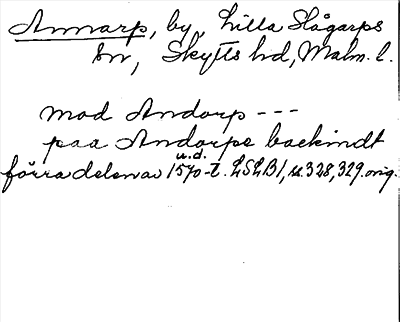 Annarp, by, Lilla Slågarps
sn, Skytts hd, Malm. l.
mod Andorp ---
paa Andorps backindt
u.d.
förra delen av 1570-t. LSLB1, s. 328, 329. orig.